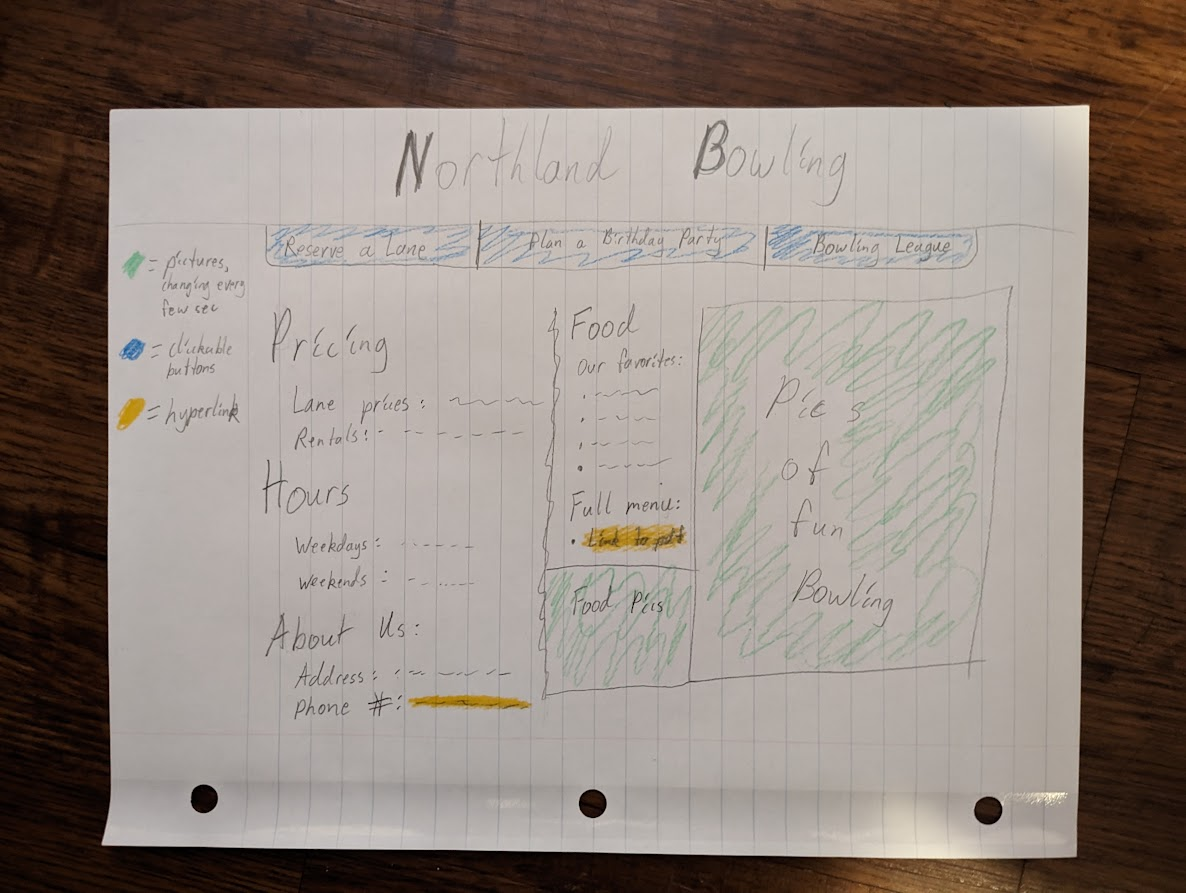 Northland Bowling
Reserve a Lane
Plan a Birthday Party
Bowling League
= pictures,
changing every
few sec
= clickable
buttons
= hyperlink
Pricing
Lane prices:
Rentals:
Hours
Weekdays:
Weekends:
About Us:
Address:
Phone #:
Food
Our favorites:
Full menu:
• Link to pdf
Food Pics
Pics
of
fun
Bowling